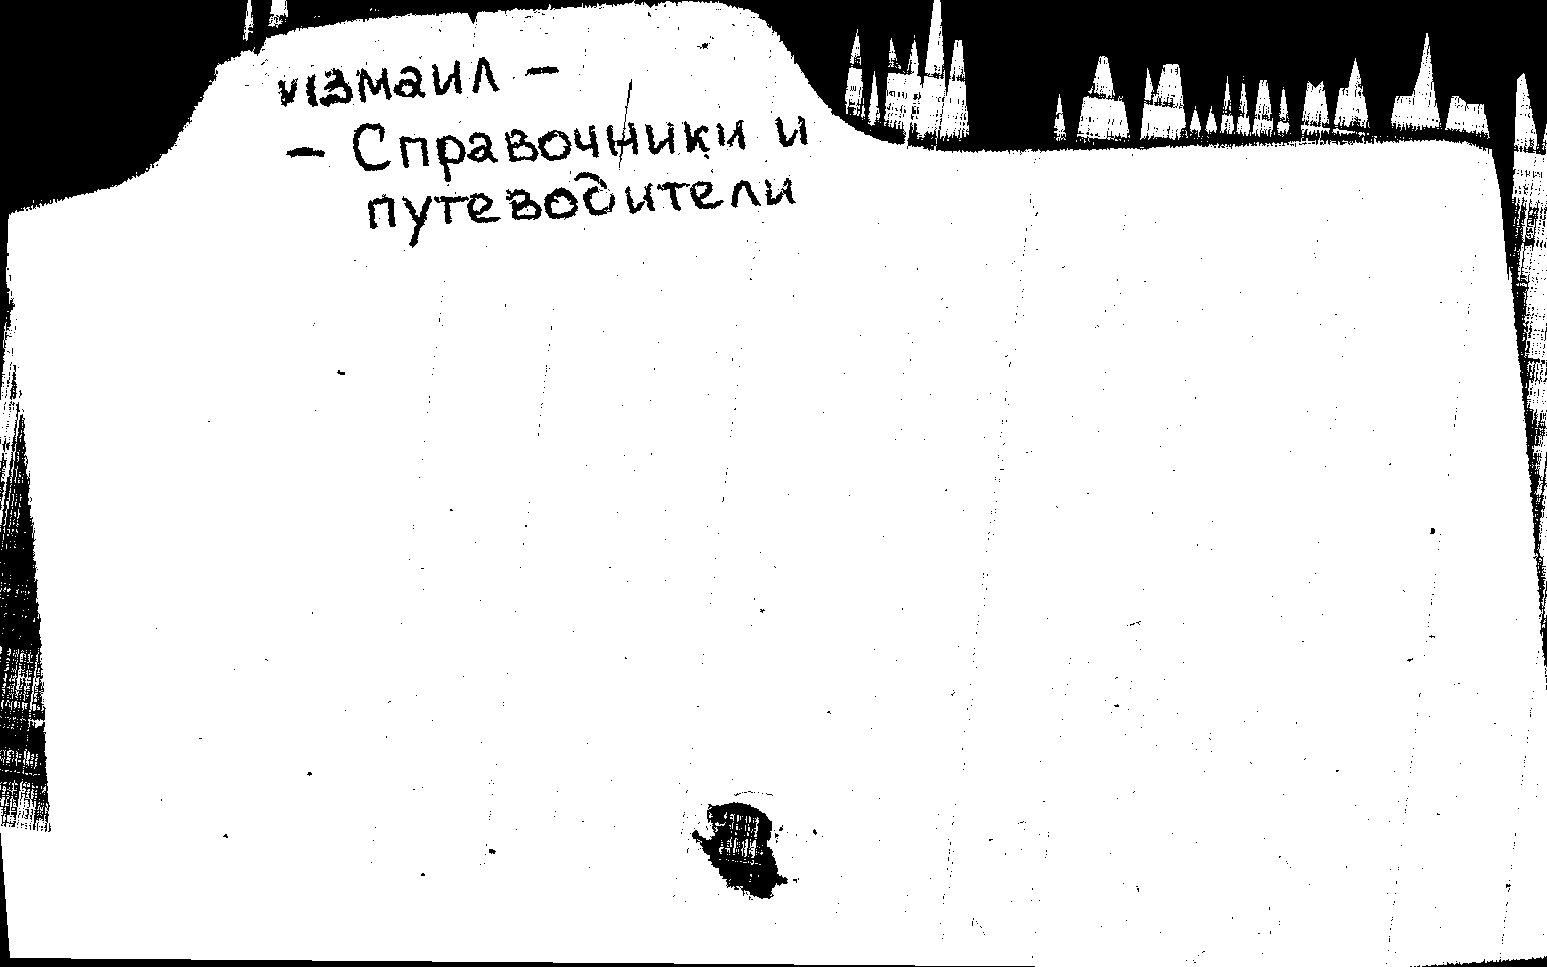 измаил –
– Справочники и
путеводители